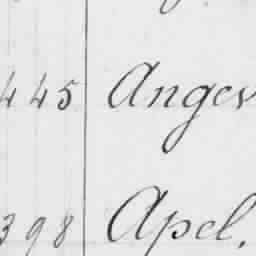 445 Angev
398 Apel.